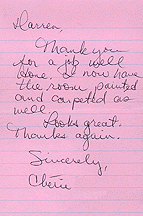 Harren,
Thank you
for a job well
done. I now have
the room painted
and carpeted as
well.
Looks great.
Thanks again.
Sincerely,
Chérie